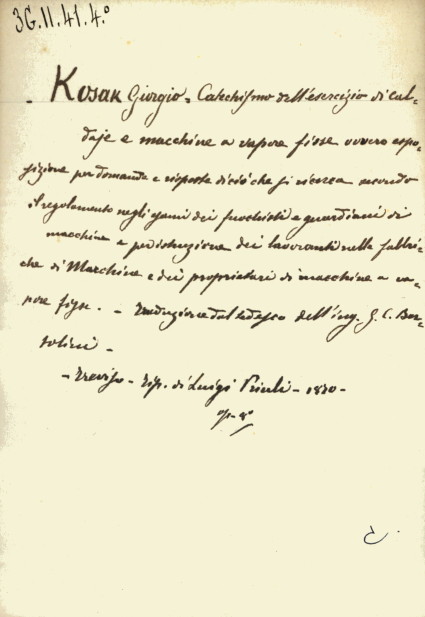 3G.II.41.4.º
- Kosak Giorgio - Catechismo dell'esercizio di cal-
daje e macchine a vapore fisse ovvero espo-
sizione per domande e risposte di ciò che si ricerca secondo
il regolamento negli esami dei fuochisti e guardiani di
macchine e per istruzione dei lavoranti nelle fabbri-
che di Macchine e dei proprietari di macchine a va-
pore fisse. - Traduzione dal tedesco dell'ing. G. C. Ber-
tolini -
- Treviso - Tip. di Luigi Priuli - 1870 -
8º